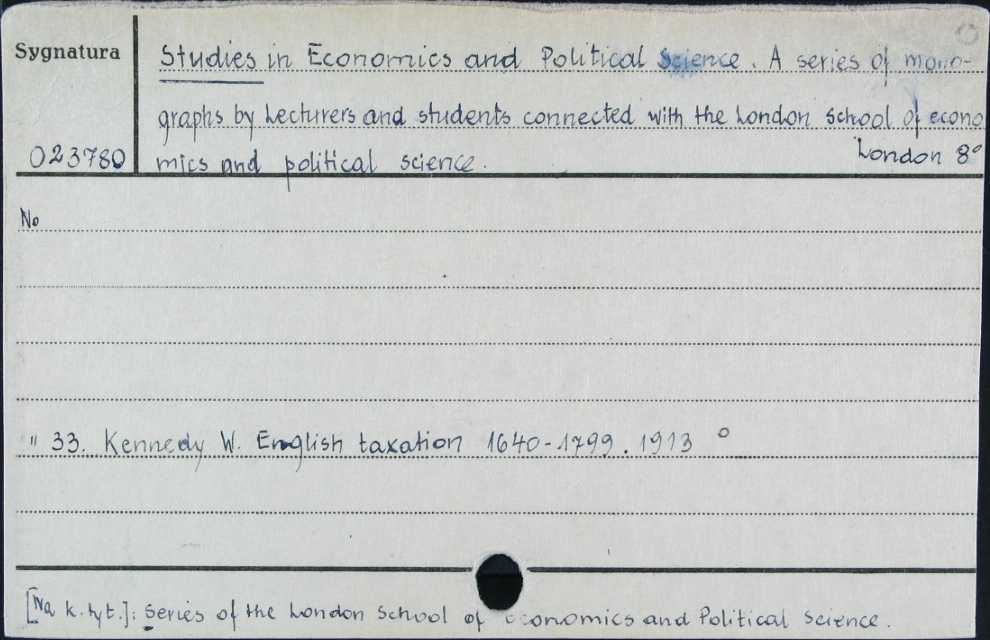 Sygnatura
Studies in Economics and Political Science. A series of mono-
graphs by Lecturers and students connected with the London school of econo
023780 mics and political science. London 8°
No
" 33. Kennedy W. English taxation 1640-1799. 1913 °
[Na k. tyt.]: Series of the London School of Economics and Political Science.